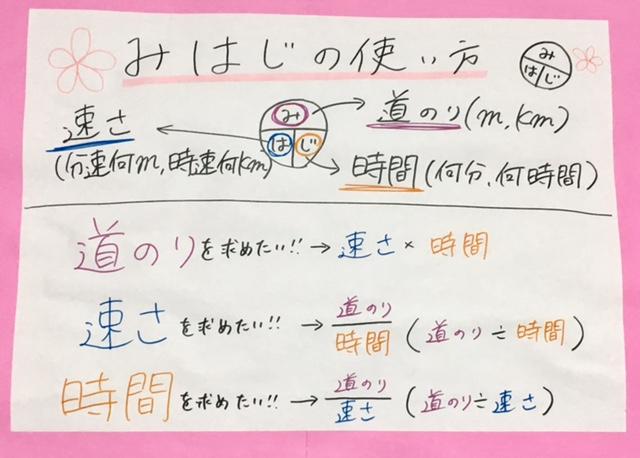 みはじの使い方
み
は じ
速さ
(分速何m,時速何km)
み
は じ
道のり(m,km)
時間(何分、何時間)
道のりを求めたい!!→速さ×時間
速さを求めたい!!→道のり/時間(道のり÷時間)
時間を求めたい!!→道のり/速さ(道のり÷速さ)